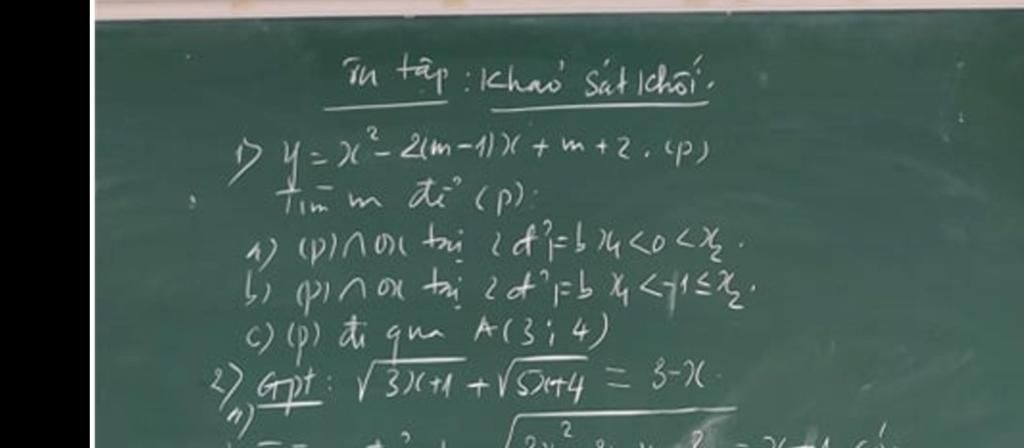 Ôn tập: Khảo sát khối.
1) y = x² - 2(m-1)x + m + 2. (P)
Tìm m để (P):
a) (P) ∩ ox tại 2 đ' p b x₁ < 0 < x₂.
b) (P) ∩ ox tại 2 đ' p b x₁ < -1 ≤ x₂.
c) (P) đi qua A(3; 4)
2) Gpt: √3x+1 + √5x+4 = 3-x.